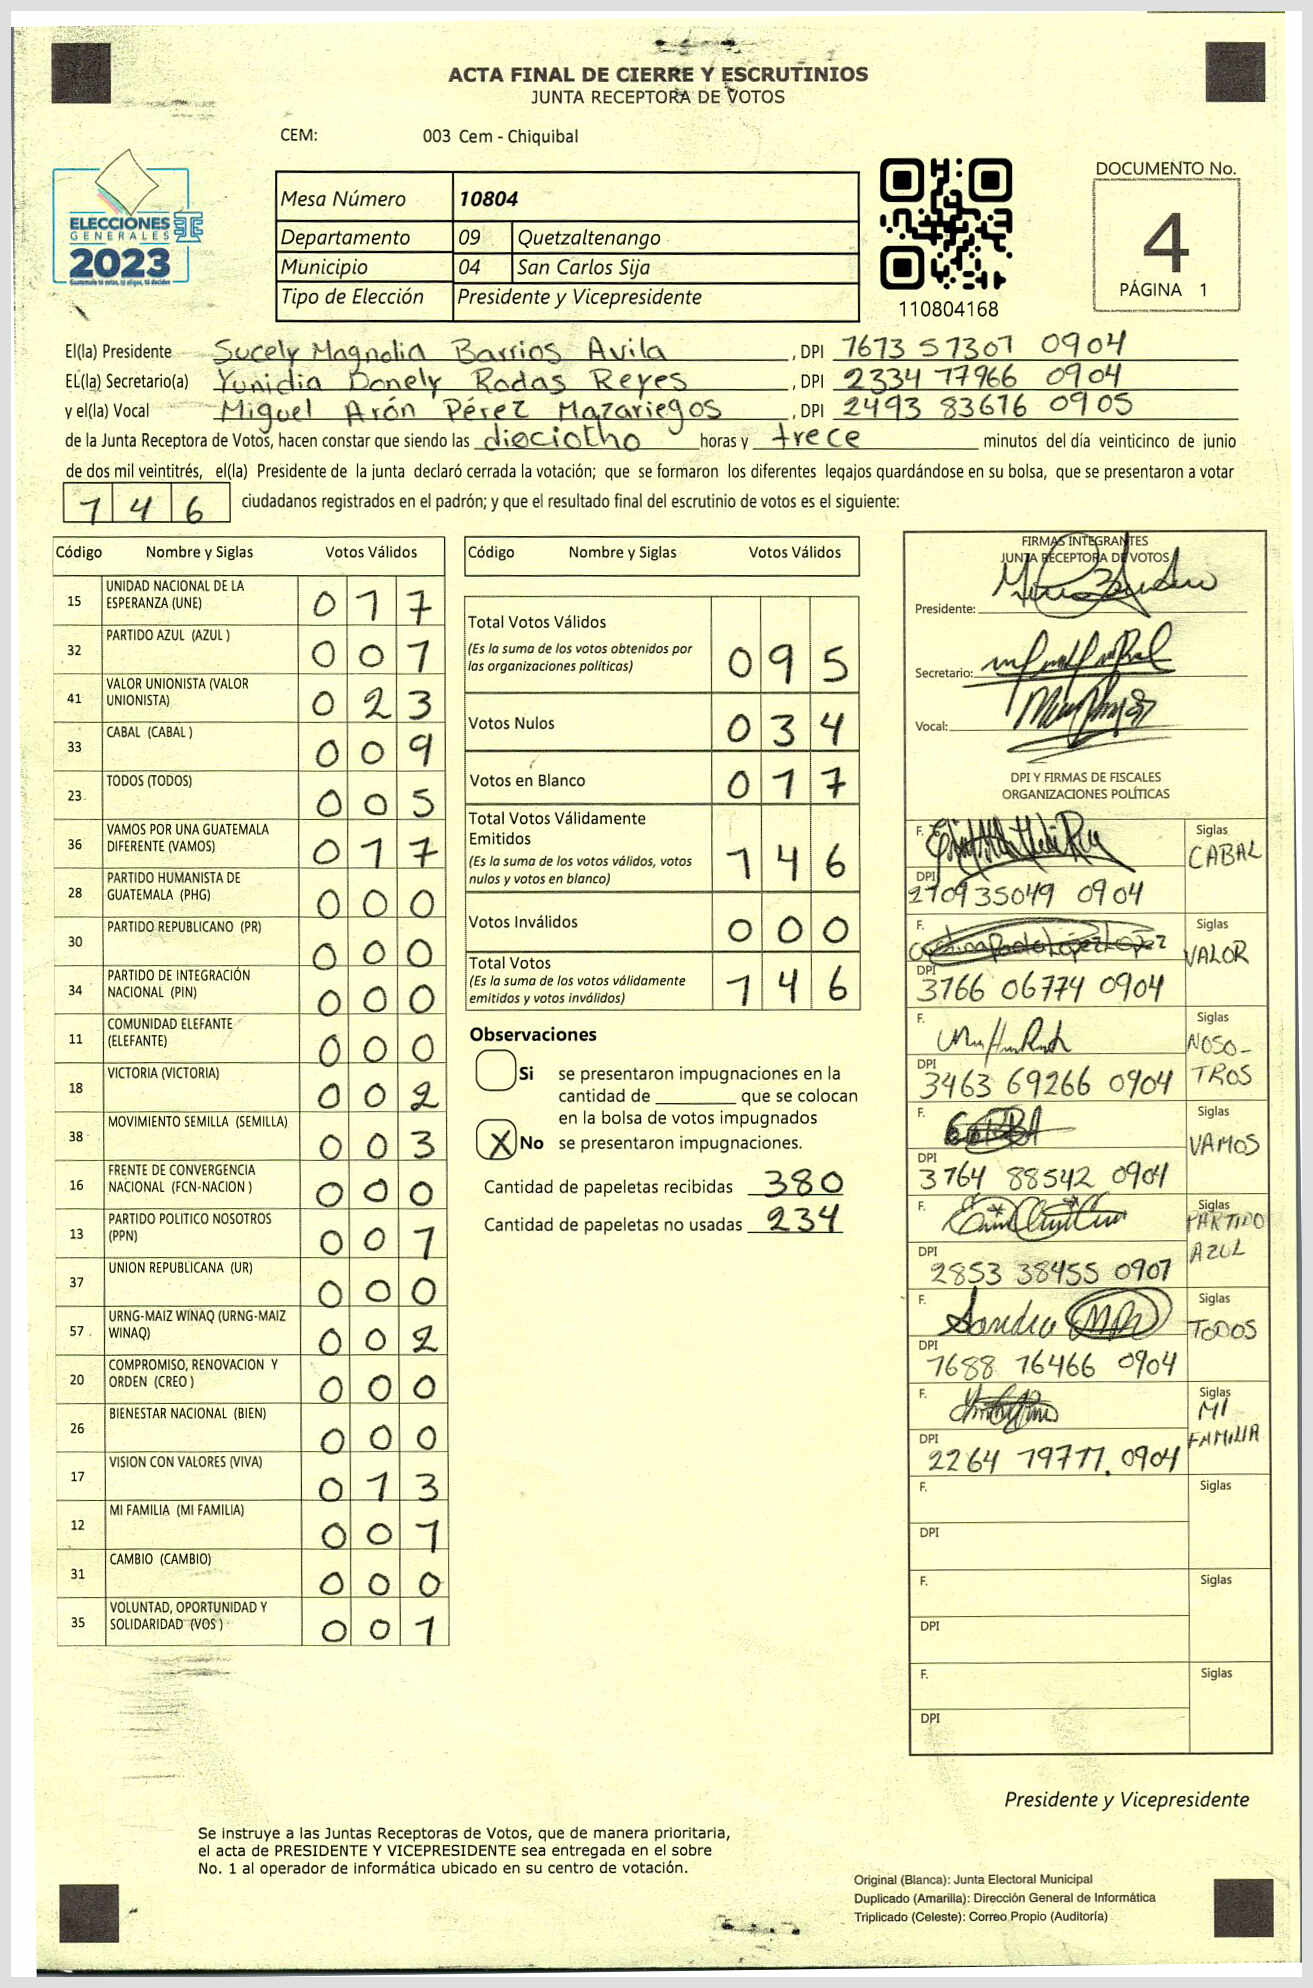 ACTA FINAL DE CIERRE Y ESCRUTINIOS
JUNTA RECEPTORA DE VOTOS
CEM: 003 Cem - Chiquibal
ELECCIONES
GENERALES
2023
Guatemala tú votas, tú eliges, tú decides
Mesa Número 10804
Departamento 09 Quetzaltenango
Municipio 04 San Carlos Sija
Tipo de Elección Presidente y Vicepresidente
110804168
DOCUMENTO No.
4
PÁGINA 1
El(la) Presidente Sucely Magnolia Barrios Avila , DPI 1613 51301 0904
EL(la) Secretario(a) Yunidia Donely Rodas Reyes , DPI 2334 17966 0904
y el(la) Vocal Miguel Arón Pérez Mazariegos , DPI 2493 83616 0905
de la Junta Receptora de Votos, hacen constar que siendo las dieciotho horas y trece minutos del día veinticinco de junio
de dos mil veintitrés, el(la) Presidente de la junta declaró cerrada la votación; que se formaron los diferentes legajos quardándose en su bolsa, que se presentaron a votar
146 ciudadanos registrados en el padrón; y que el resultado final del escrutinio de votos es el siguiente:
Código Nombre y Siglas Votos Válidos
15 UNIDAD NACIONAL DE LA ESPERANZA (UNE) 017
32 PARTIDO AZUL (AZUL ) 001
41 VALOR UNIONISTA (VALOR UNIONISTA) 023
33 CABAL (CABAL ) 009
23 TODOS (TODOS) 005
36 VAMOS POR UNA GUATEMALA DIFERENTE (VAMOS) 017
28 PARTIDO HUMANISTA DE GUATEMALA (PHG) 000
30 PARTIDO REPUBLICANO (PR) 000
34 PARTIDO DE INTEGRACIÓN NACIONAL (PIN) 000
11 COMUNIDAD ELEFANTE (ELEFANTE) 000
18 VICTORIA (VICTORIA) 002
38 MOVIMIENTO SEMILLA (SEMILLA) 003
16 FRENTE DE CONVERGENCIA NACIONAL (FCN-NACION ) 000
13 PARTIDO POLITICO NOSOTROS (PPN) 001
37 UNION REPUBLICANA (UR) 000
57 URNG-MAIZ WINAQ (URNG-MAIZ WINAQ) 002
20 COMPROMISO, RENOVACION Y ORDEN (CREO ) 000
26 BIENESTAR NACIONAL (BIEN) 000
17 VISION CON VALORES (VIVA) 013
12 MI FAMILIA (MI FAMILIA) 001
31 CAMBIO (CAMBIO) 000
35 VOLUNTAD, OPORTUNIDAD Y SOLIDARIDAD (VOS ) 001
Código Nombre y Siglas Votos Válidos
Total Votos Válidos
(Es la suma de los votos obtenidos por las organizaciones políticas) 095
Votos Nulos 034
Votos en Blanco 017
Total Votos Válidamente Emitidos
(Es la suma de los votos válidos, votos nulos y votos en blanco) 146
Votos Inválidos 000
Total Votos
(Es la suma de los votos válidamente emitidos y votos inválidos) 146
Observaciones
Si se presentaron impugnaciones en la
cantidad de ________ que se colocan
en la bolsa de votos impugnados
X No se presentaron impugnaciones.
Cantidad de papeletas recibidas 380
Cantidad de papeletas no usadas 234
FIRMAS INTEGRANTES
JUNTA RECEPTORA DE VOTOS
Presidente:
Secretario:
Vocal:
DPI Y FIRMAS DE FISCALES
ORGANIZACIONES POLÍTICAS
F. Siglas CABAL
DPI 2109 35049 0904
F. Siglas VALOR
DPI 3766 06774 0904
F. Siglas NOSO-TROS
DPI 3463 69266 0904
F. Siglas VAMOS
DPI 3764 88542 0904
F. Siglas PARTIDO AZUL
DPI 2853 38455 0901
F. Sandra Siglas TODOS
DPI 1688 16466 0904
F. Siglas MI FAMILIA
DPI 2264 19711 0904
F. Siglas
DPI
F. Siglas
DPI
F. Siglas
DPI
Presidente y Vicepresidente
Se instruye a las Juntas Receptoras de Votos, que de manera prioritaria,
el acta de PRESIDENTE Y VICEPRESIDENTE sea entregada en el sobre
No. 1 al operador de informática ubicado en su centro de votación.
Original (Blanca): Junta Electoral Municipal
Duplicado (Amarilla): Dirección General de Informática
Triplicado (Celeste): Correo Propio (Auditoría)